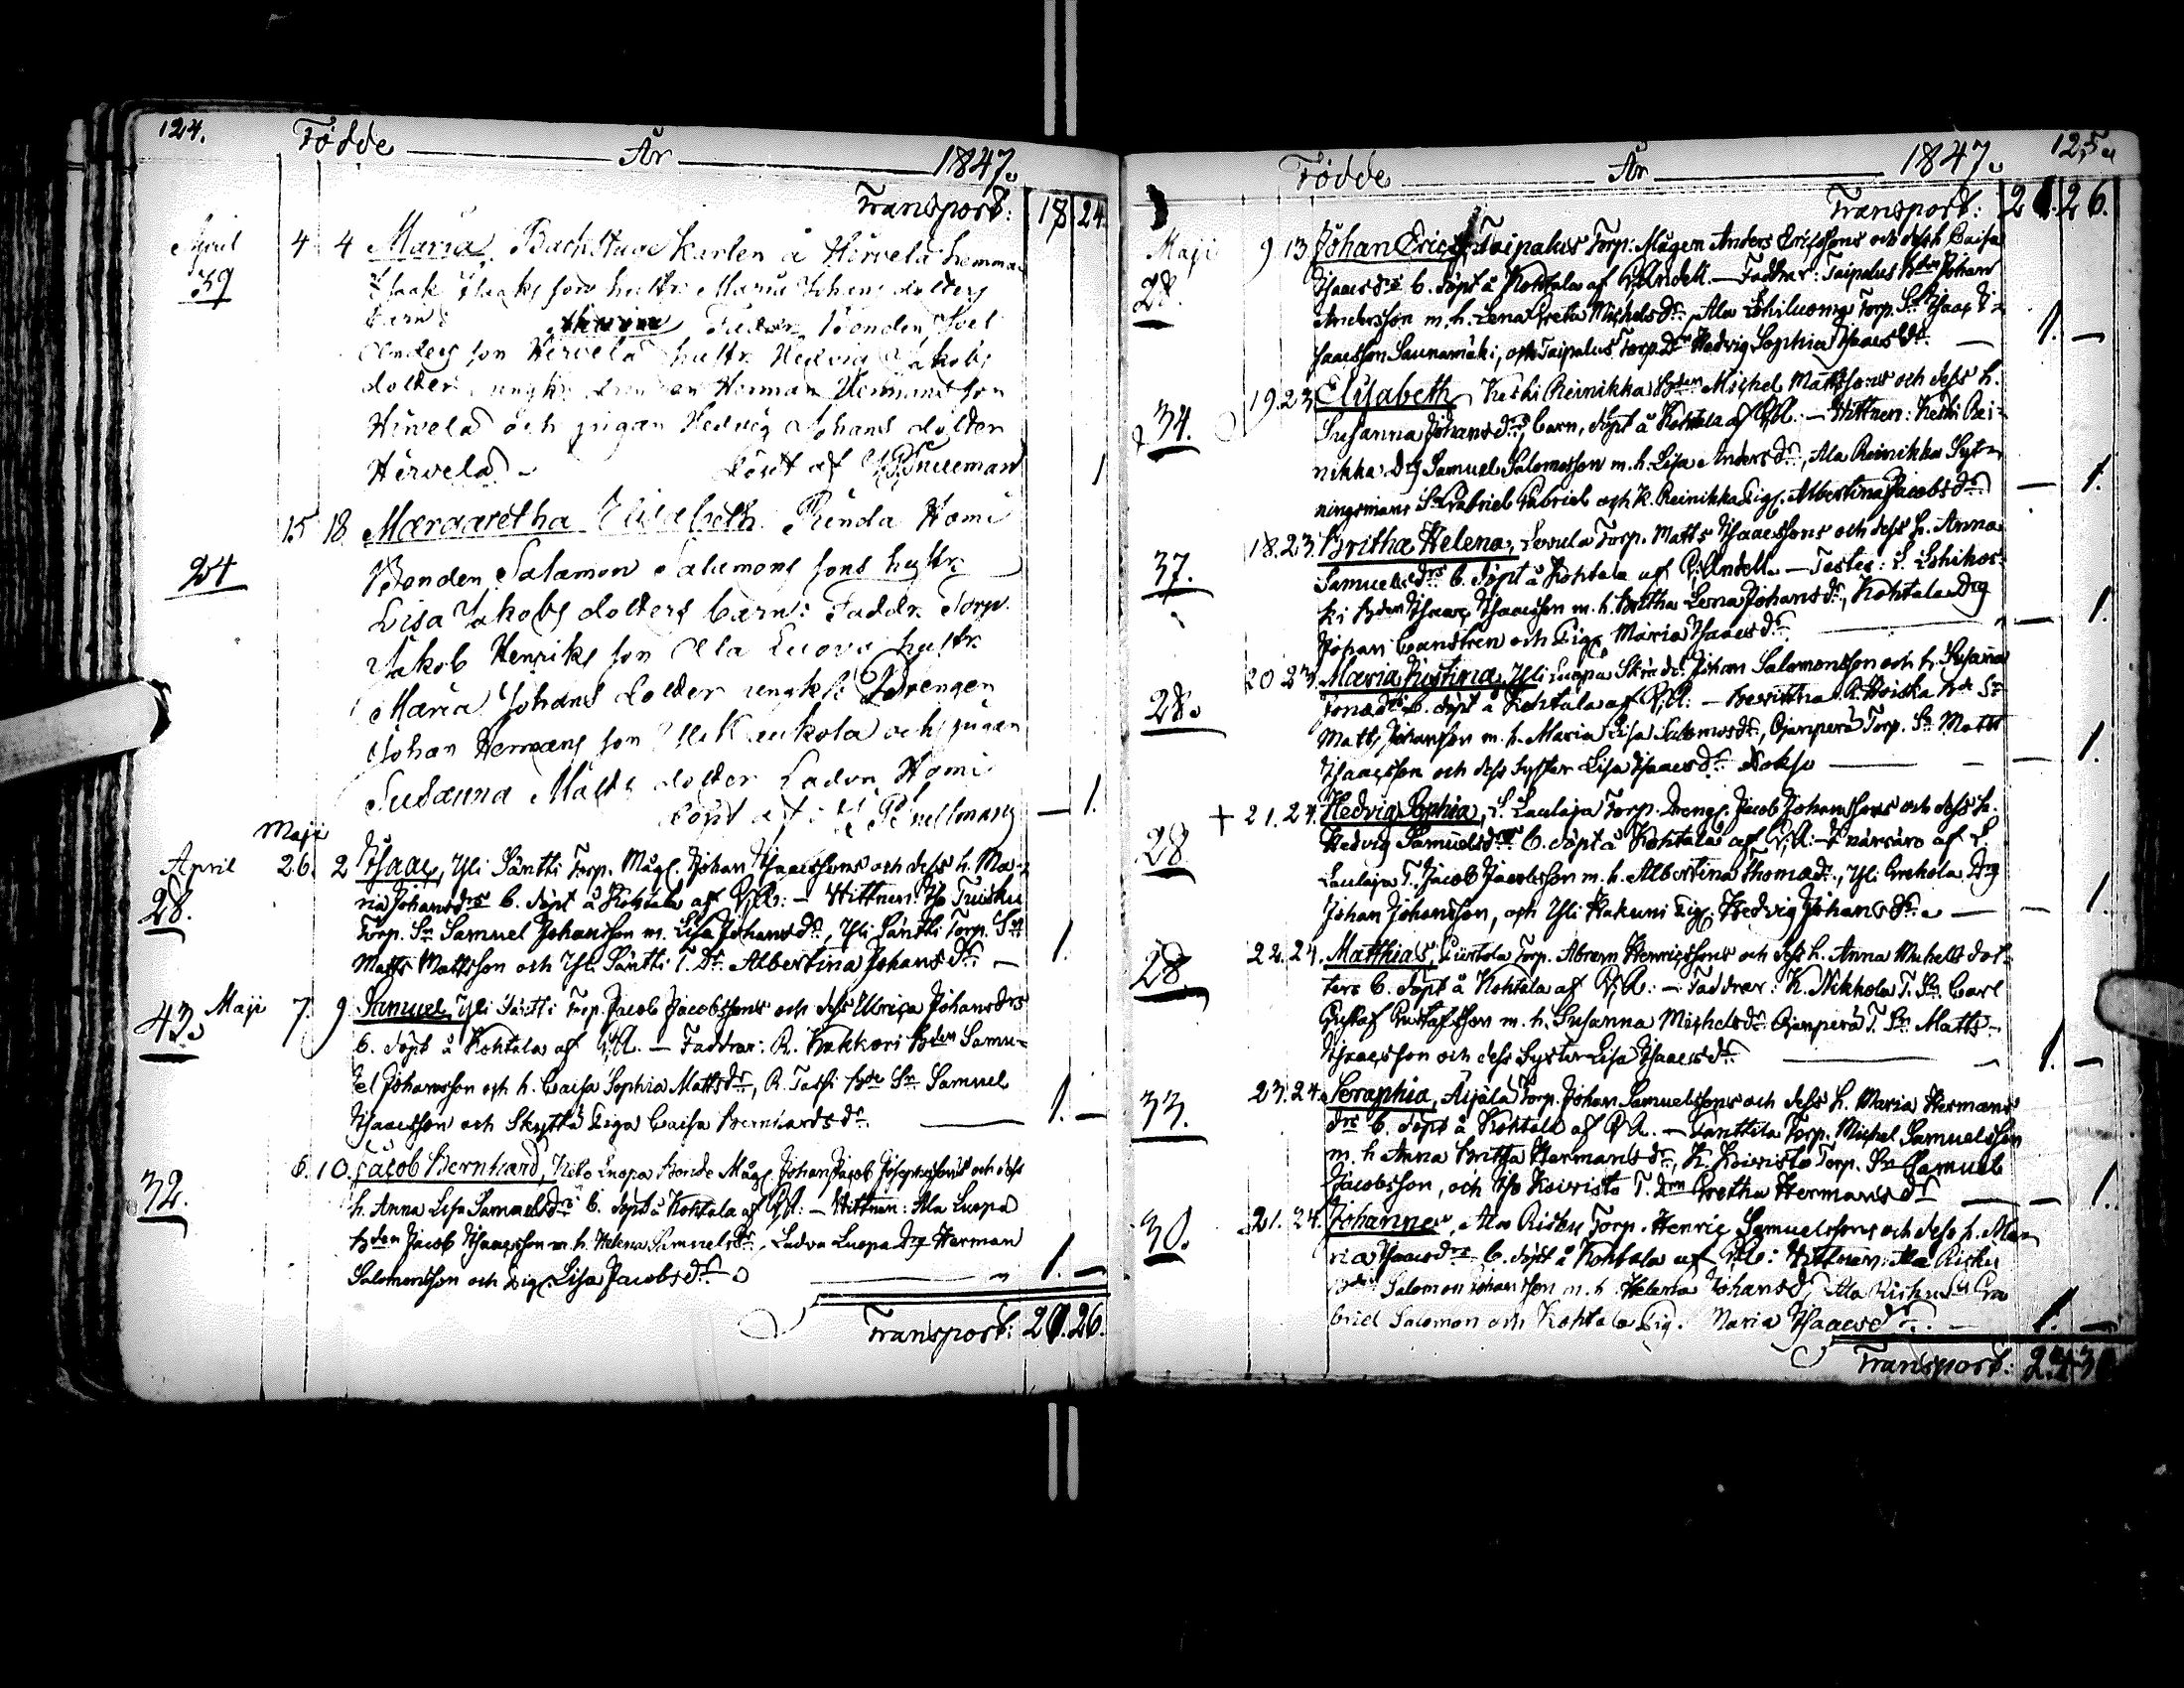 124. Födde År 1847.
Transport: 18 24
April 4 4 Maria, Backstugu Karlen å Hirvelä hemman
39 Isaak Isaaks sons hustr. Maria Johans dotters
barn: Faddr. Bonden Joel
Anders son Hirvelä hustr. Hedvig Jakobs
dotter, ungk. Herman Hermans son
Hirvelä och pigan Hedvig Johans dotter
Hirvelä döpt af 1
15 18 Margaretha Elisabeth Homi
24 Bonden Salamon Salamons sons hustr.
Lisa Jakobs dotters barn: Faddr. Torp.
Jakob Henriks son Ala Luova hustr.
Maria Johans dotter ungk: Drengen
Johan Hermans son Yli Kaukola och pigan
Susanna Matts dotter Ladvu Homi
döpt af — 1.
Maji
April 26. 2 Isaac, Yli Säntti Torp. Måg. Johan Isaacssons och dess h. Ma-
28. ria Johansdrs b. döpt å Kohtala af — Vittnen:
Torp. Sn Samuel Johansson m. Lisa Johansdr, Yli Säntti Torp. Sn
Matts Mattsson och Yli Säntti T. Dr. Albertina Johansdr. — 1.
43. Maji 7. 9 Samuel, Yli Säntti Torp. Jacob Jacobssons och dess Ulrica Johansdrs
b. döpt å Kohtala af — Faddrar: R. Kakkori Bden Samu-
el Johansson och h. Caisa Sophia Mattsdr, R. Tassi Bde Sn Samuel
Isaacsson och Skyttä Piga Caisa Bernhardsdr. — 1. —
6. 10. Jacob Bernhard, Luopa Bonde Måg. Johan Jacob Josephssons och dess
32. h. Anna Lisa Samuelsdrs b. döpt å Kohtala af — Vittnen: Ala Luopa
Bden Jacob Isaacsson m. h. Helena Samuelsdr, Ladvu Luopa Drg Herman
Salomonsson och Pig. Lisa Jacobsdr. — 1. —
Transport: 21. 26.
Födde År 1847. 125.
Transport: 21. 26.
Maji 9 13 Johan Eric, Taipalus Torp. Mågen Anders Ericssons och dess h Caisa
28. Isaacsdrs b. döpt å Kohtala af Andell. — Faddrar: Taipalus Bden Johan
Andersson m. h. Lena Greta Michelsdr, Ala Torp. Sn Isaac I-
saacsson Saunamäki, och Taipalus Torp. Dr Hedvig Sophia Isaacsdr. — 1. —
19. 23. Elisabeth, Keski Reinikka Bden Michel Mattssons och dess h.
34. Susanna Johansdrs barn, döpt å Kohtala af — Vittnen: Keski Rei-
nikka Drg Samuel Salomosson m. h. Lisa Andersdr, Ala Reinikka Syt-
ningsmans Sn Gabriel Gabriels och K. Reinikka Pig. Albertina Jacobsdr. — 1.
18. 23. Britha Helena, Torp. Matts Isaacssons och dess h. Anna
37. Samuelsdrs b. döpt å Kohtala af Andell. — Testes: L.
Bden Isaac Isaacsson m. h. Britha Lena Johansdr, Kohtala Drg
Johan Castren och Pig. Maria Isaacsdr. — 1.
20 23. Maria Kristina, Yli Luopa Skrädd. Johan Salomonsson och h. Susanna
28. b. döpt å Kohtala af — R. Bde Sn
Matts Johansson m. h. Maria Lisa Salomosdr, Ojanperä Torp. Sn Matts
Isaacsson och dess Syster Lisa Isaacsdr. — 1.
+ 21. 24. Hedvig Sophia, L. Laulaja Torp. Dreng. Jacob Johanssons och dess h.
28 Hedvig Samuelsdrs b. döpt å Kohtala af — närvaro af L.
Laulaja T. Jacob Jacobsson m. h. Albertina Thomasdr., Yli Drg
Johan Johansson, och Yli Hakuni Pig. Hedvig Johansdr. — 1.
22. 24. Matthias, Torp. Abram Henricssons och dess h. Anna Michels dot-
28. ters b. döpt å Kohtala af — Faddrar: K. Nikkola T. Sn. Carl
Gustaf Gustafsson m. h. Susanna Michelsdr, Ojanperä T. Sn Matts
Isaacsson och dess Syster Lisa Isaacsdr. — 1. —
23. 24. Seraphia, Äijälä Torp. Johan Samuelssons och dess h. Maria Hermans
33. drs b. döpt å Kohtala af — Panttila Torp. Michel Samuelsson
m. h Anna Britha Hermansdr, K. Koivisto Torp. Sn Samuel
Jacobsson, och Koivisto T. Dtm Gretha Hermansdr — 1.
21. 24. Johannes, Ala Risku Torp. Henric Samuelssons och dess h. Ma-
30. ria Isaacsdrs b. döpt å Kohtala af Vittnen: Ala Risku
Salomon Johansson m. h Helena Johansdr, Ala Risku Sn Ga
briel Salomon och Kohtala Pig. Maria Isaacsdr. — 1. —
Transport: 24 31